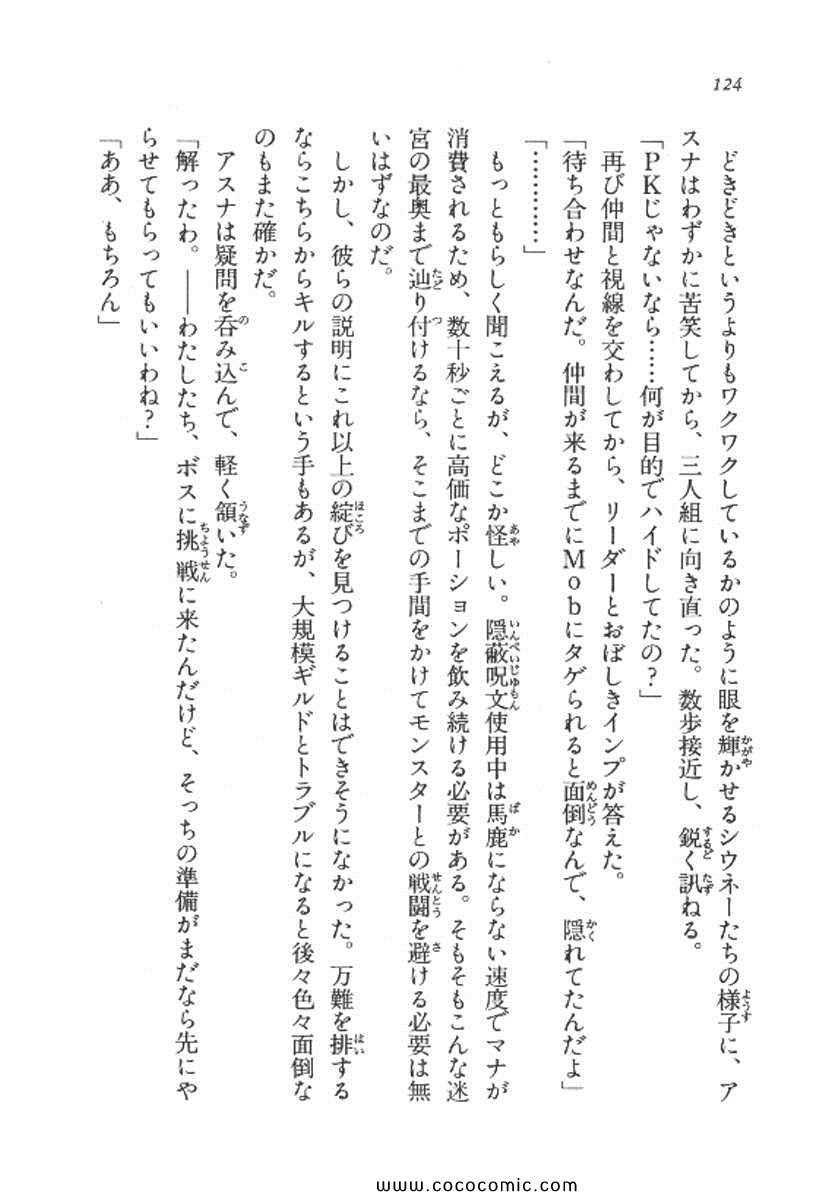 124
どきどきというよりもワクワクしているかのように眼を輝かせるシウネーたちの様子に、ア
スナはわずかに苦笑してから、三人組に向き直った。数歩接近し、鋭く訊ねる。
「PKじゃないなら……何が目的でハイドしてたの？」
再び仲間と視線を交わしてから、リーダーとおぼしきインプが答えた。
「待ち合わせなんだ。仲間が来るまでにMobにタゲられると面倒なんで、隠れてたんだよ」
「…………」
もっともらしく聞こえるが、どこか怪しい。隠蔽呪文使用中は馬鹿にならない速度でマナが
消費されるため、数十秒ごとに高価なポーションを飲み続ける必要がある。そもそもこんな迷
宮の最奥まで辿り付けるなら、そこまでの手間をかけてモンスターとの戦闘を避ける必要は無
いはずなのだ。
しかし、彼らの説明にこれ以上の綻びを見つけることはできそうになかった。万難を排する
ならこちらからキルするという手もあるが、大規模ギルドとトラブルになると後々色々面倒な
のもまた確かだ。
アスナは疑問を呑み込んで、軽く頷いた。
「解ったわ。――わたしたち、ボスに挑戦に来たんだけど、そっちの準備がまだなら先にや
らせてもらってもいいわね？」
「ああ、もちろん」
www.cococomic.com